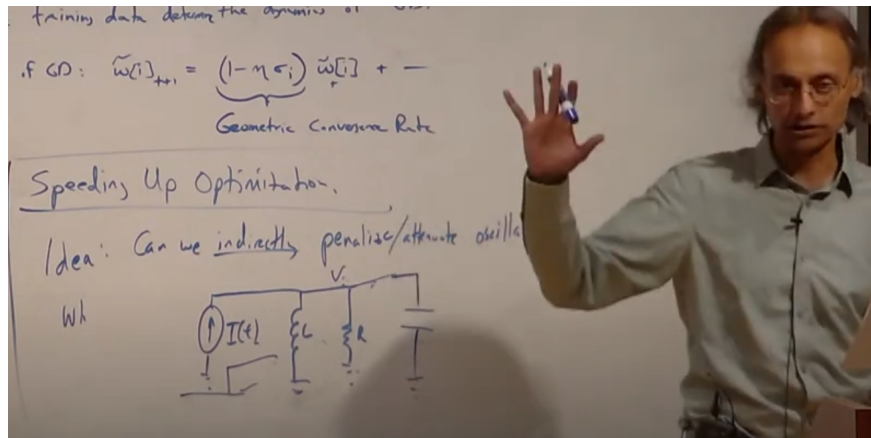 training data determine the dynamics of GD.
if GD: w̃[i]_{t+1} = (1-ησ_i) w̃[i]_t + —
Geometric Convergence Rate
Speeding Up Optimization.
Idea: Can we indirectly penalize/attenuate oscilla
V
Wh
I(t)
L
R